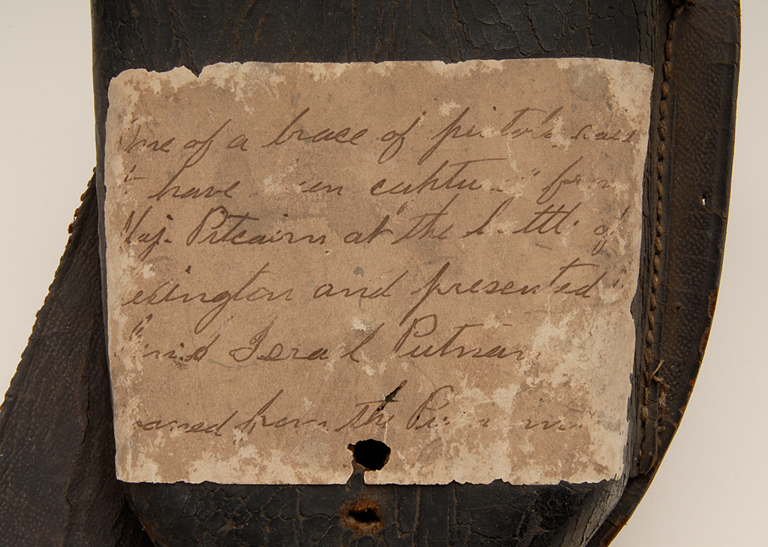 One of a brace of pistols said
have een captu from
Maj. Pitcairn at the battle of
exington and presented
Israel Putnam
oaned from the